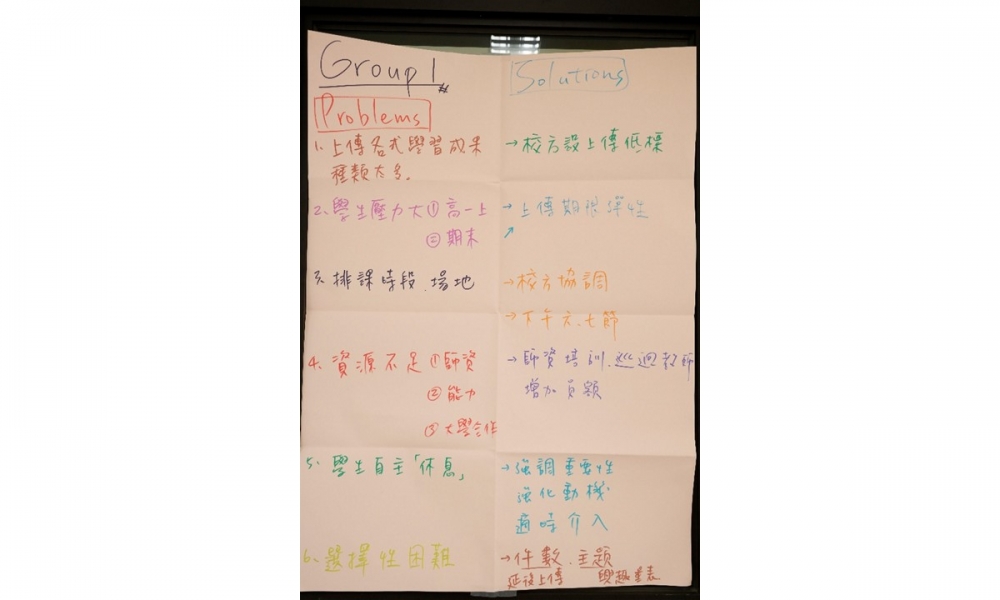 Group 1
Problems
1. 上傳各式學習成果
種類太多。
2、學生壓力大①高一上
②期末
3. 排課時段、場地
4、資源不足①師資
②能力
③大學合作
5、學生自主「休息」
6、選擇性困難
Solutions
→校方設上傳低標
→上傳期限彈性
↗
→校方協調
→下午六、七節
→師資培訓、巡迴教師
增加員額
→強調重要性
強化動機
適時介入
→件數、主題
延後上傳 興趣量表